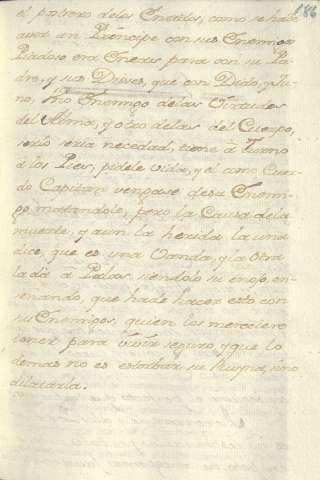 186
el postrero de las Eneydas, como se ha de
aver un Principe con sus Enemigos
Piadoso era Eneas para con su Pa-
dre, y sus Dioses, que con Dido, y Tur-
no, Uno Enemigo de las Virtudes
del Alma, y otro de las del Cuerpo,
serlo seria necedad, tiene à Turno
à los Pies, pidele vida, y el como Cuer-
do Capitan vengase de su Enemi-
go matandole, pero la Causa de la
muerte, y aun la herida la una
dice, que es una Vanda, y la otra
la dà à Palas, siendolo su enojo, en-
senando, que ha de hacer esto con
sus Enemigos, quien los mereciere
tener para vivir seguro, y que lo
demas no es estorbar su Ruyna, sino
dilatarla.